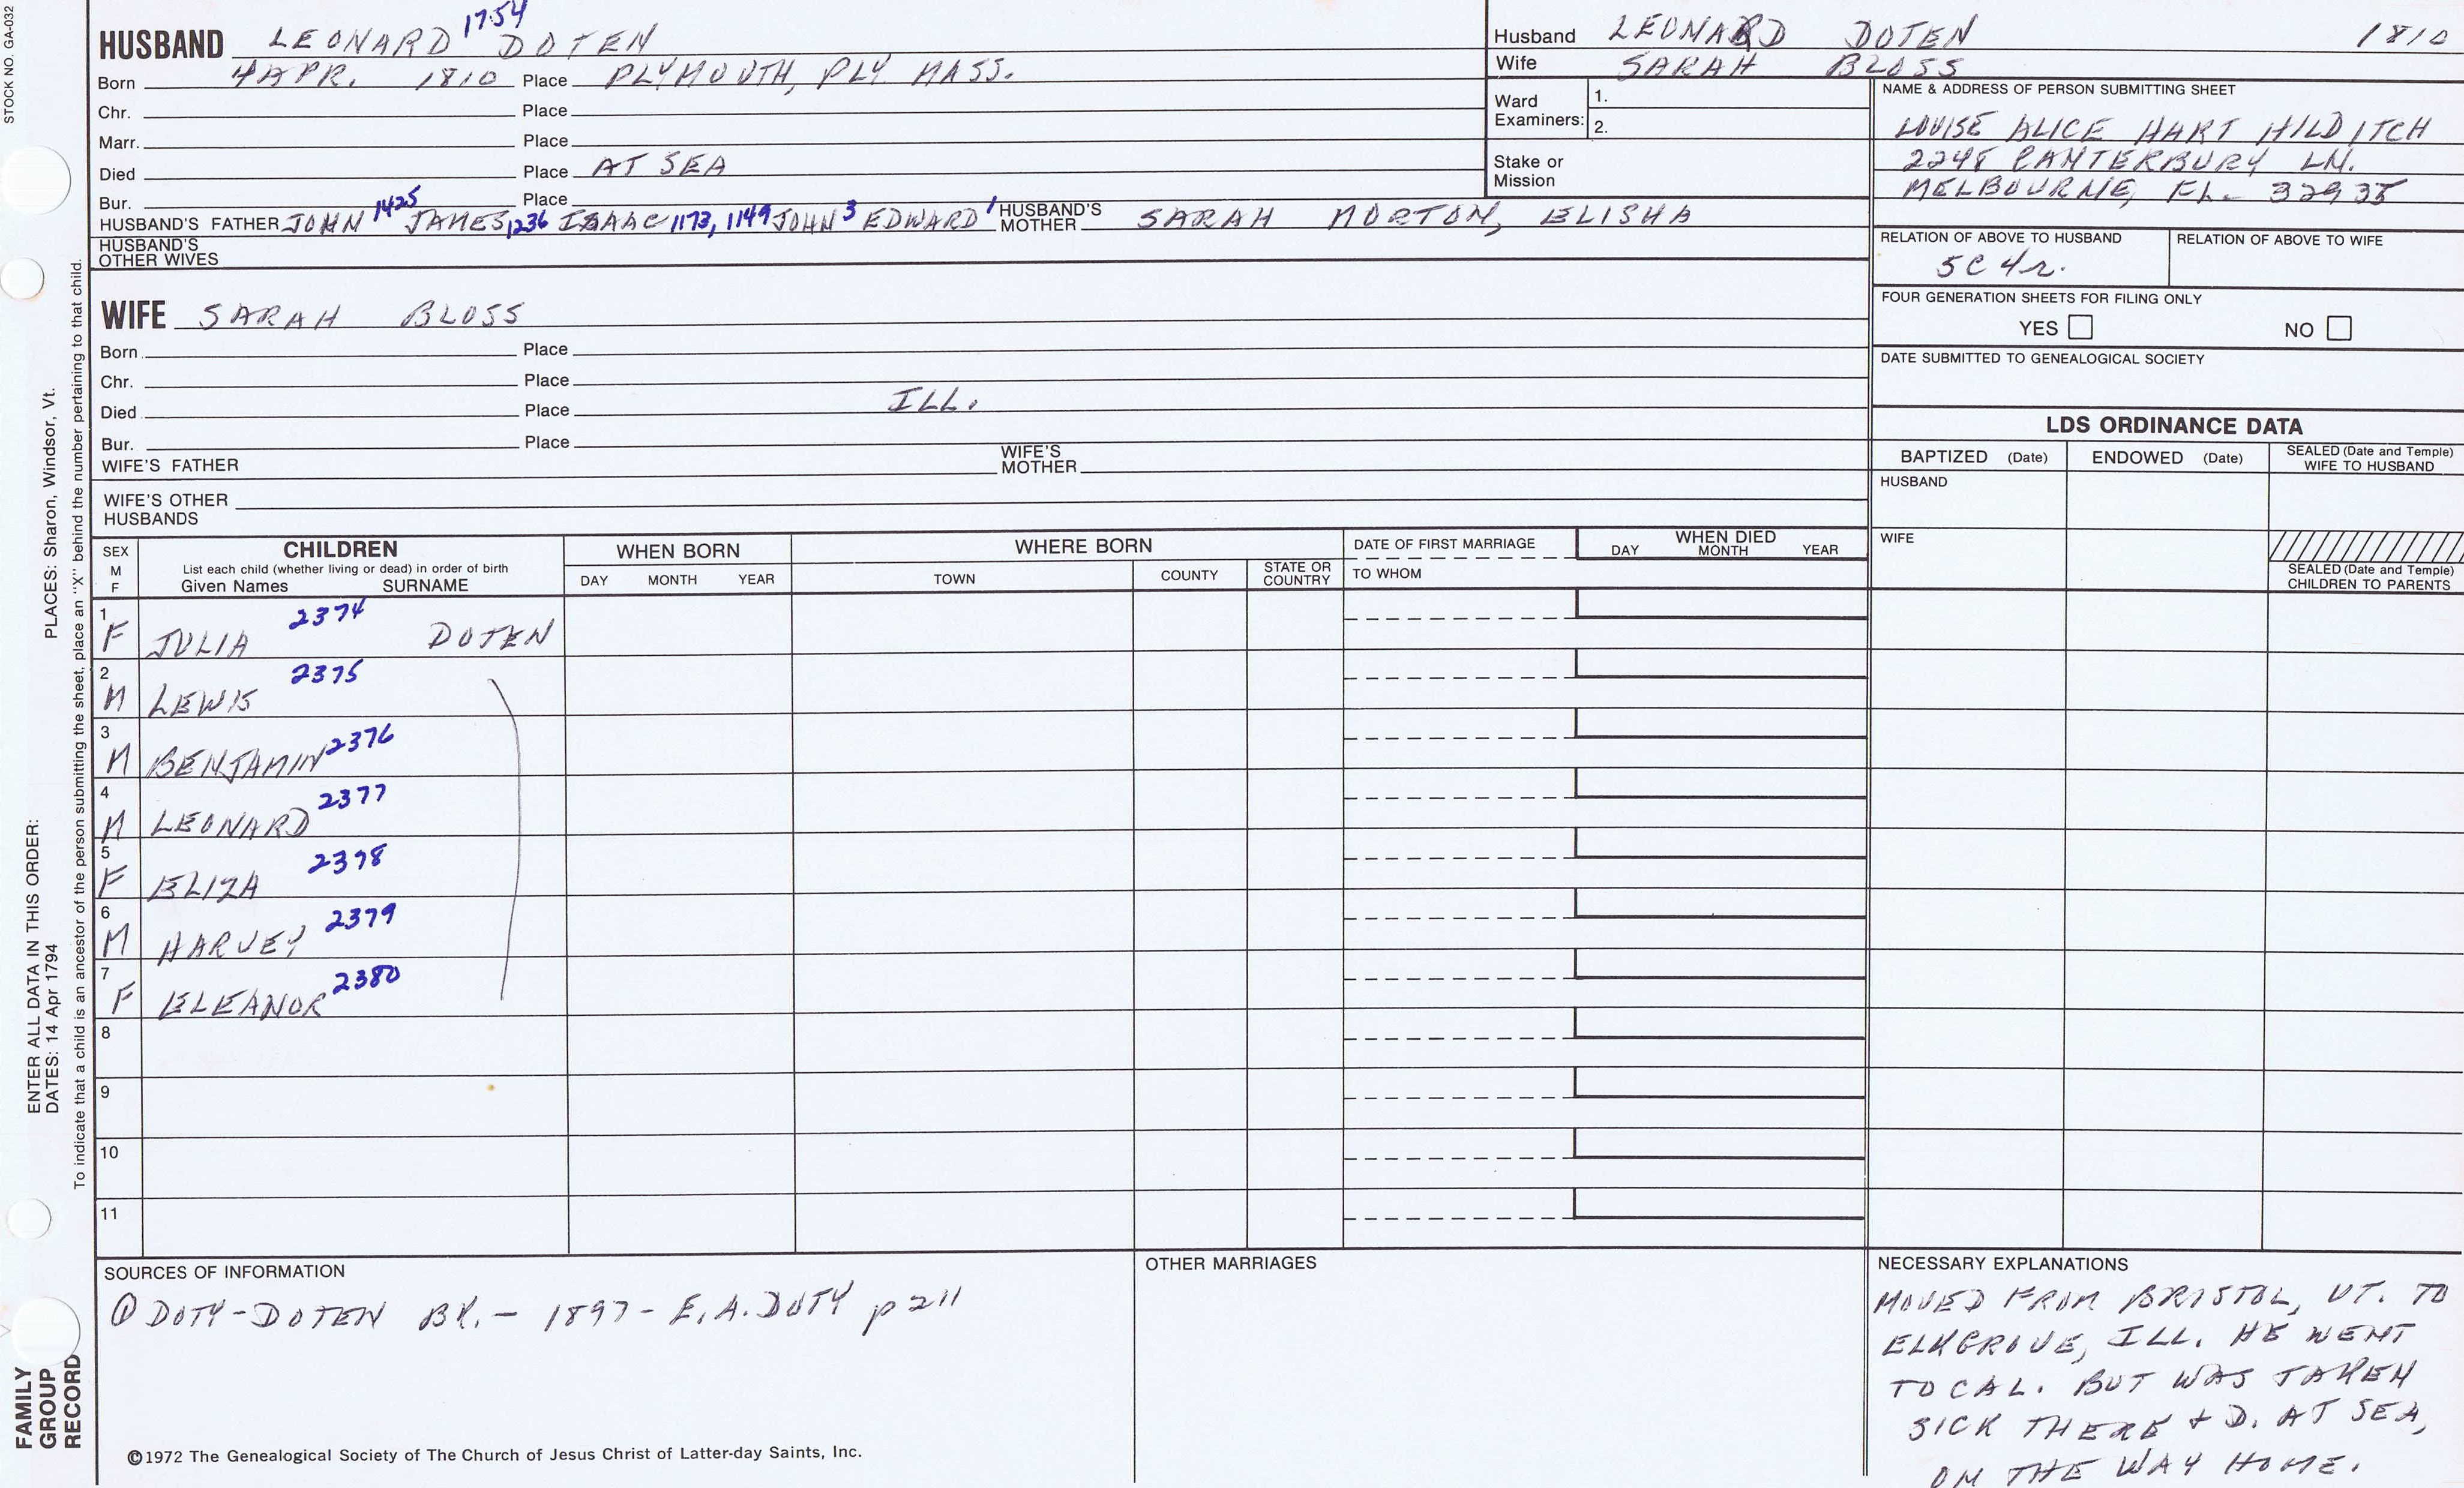 STOCK NO. GA-032
HUSBAND LEONARD 1754 DOTEN
Born 4 APR. 1810 Place PLYMOUTH, PLY MASS.
Chr. Place
Marr. Place
Died Place AT SEA
Bur. Place
HUSBAND'S FATHER JOHN 1425 JAMES 1236 ISAAC 1173, 1149 JOHN 3 EDWARD 1 HUSBAND'S MOTHER SARAH MORTON, ELISHA
HUSBAND'S OTHER WIVES
Husband LEONARD DOTEN 1810
Wife SARAH BLOSS
Ward Examiners: 1.
2.
Stake or Mission
NAME & ADDRESS OF PERSON SUBMITTING SHEET
LOUISE ALICE HART HILDITCH
2248 CANTERBURY LN.
MELBOURNE, FL. 32935
RELATION OF ABOVE TO HUSBAND RELATION OF ABOVE TO WIFE
5C 4r.
FOUR GENERATION SHEETS FOR FILING ONLY
YES NO
DATE SUBMITTED TO GENEALOGICAL SOCIETY
WIFE SARAH BLOSS
Born Place
Chr. Place
Died Place ILL.
Bur. Place
WIFE'S FATHER WIFE'S MOTHER
WIFE'S OTHER HUSBANDS
LDS ORDINANCE DATA
BAPTIZED (Date) ENDOWED (Date) SEALED (Date and Temple) WIFE TO HUSBAND
HUSBAND
WIFE
SEALED (Date and Temple) CHILDREN TO PARENTS
SEX M F CHILDREN WHEN BORN WHERE BORN DATE OF FIRST MARRIAGE WHEN DIED
List each child (whether living or dead) in order of birth
Given Names SURNAME DAY MONTH YEAR TOWN COUNTY STATE OR COUNTRY TO WHOM DAY MONTH YEAR
1 F JULIA 2374 DOTEN
2 M LEWIS 2375
3 M BENJAMIN 2376
4 M LEONARD 2377
5 F ELIZA 2378
6 M HARVEY 2379
7 F ELEANOR 2380
8
9
10
11
SOURCES OF INFORMATION
① DOTY-DOTEN BK. - 1897 - E.A. DOTY p 211
OTHER MARRIAGES
NECESSARY EXPLANATIONS
MOVED FROM BRISTOL, VT. TO
ELKGROVE, ILL. HE WENT
TO CAL. BUT WAS TAKEN
SICK THERE & D. AT SEA,
ON THE WAY HOME.
©1972 The Genealogical Society of The Church of Jesus Christ of Latter-day Saints, Inc.
FAMILY GROUP RECORD
ENTER ALL DATA IN THIS ORDER:
DATES: 14 Apr 1794 PLACES: Sharon, Windsor, Vt.
To indicate that a child is an ancestor of the person submitting the sheet, place an "X" behind the number pertaining to that child.